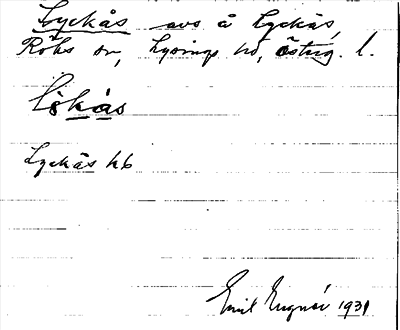 Lyckås avs å Lyckås,
Röks sn, Lysings hd, Östergl. l.
Lökås
Lyckås hb
Emil 1931